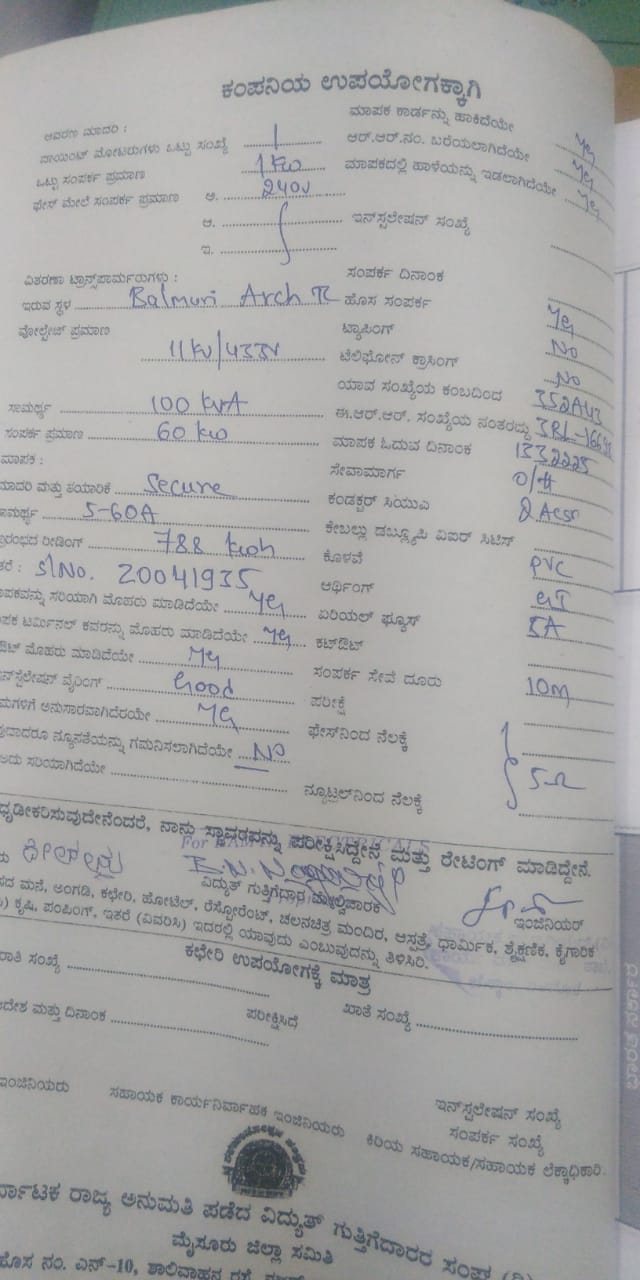 ಕಂಪನಿಯ ಉಪಯೋಗಕ್ಕಾಗಿ
ಆವರಣ ಮಾದರಿ :
ಪಾಯಿಂಟ್ ಮೋಟರುಗಳು ಒಟ್ಟು ಸಂಖ್ಯೆ 1
ಒಟ್ಟು ಸಂಪರ್ಕ ಪ್ರಮಾಣ 1 KW
ಫೇಸ್ ಮೇಲೆ ಸಂಪರ್ಕ ಪ್ರಮಾಣ ಅ. 240V
ಆ.
ಇ.
ವಿತರಣಾ ಟ್ರಾನ್ಸ್‌ಫಾರ್ಮರುಗಳು :
ಇರುವ ಸ್ಥಳ Balmuri Arch TC
ವೋಲ್ಟೇಜ್ ಪ್ರಮಾಣ
11KV/433V
ಸಾಮರ್ಥ್ಯ 100 KVA
ಸಂಪರ್ಕ ಪ್ರಮಾಣ 60 KW
ಮಾಪಕ :
ಮಾದರಿ ಮತ್ತು ತಯಾರಿಕೆ Secure
ಸಾಮರ್ಥ್ಯ 5-60A
ಪ್ರಾರಂಭದ ರೀಡಿಂಗ್ 788 kwh
ಇತರೆ : Sl No. 20041935
ಮಾಪಕವನ್ನು ಸರಿಯಾಗಿ ಮೊಹರು ಮಾಡಿದೆಯೇ Yes
ಮಾಪಕ ಟರ್ಮಿನಲ್ ಕವರನ್ನು ಮೊಹರು ಮಾಡಿದೆಯೇ Yes
ಮೊಹರು ಮಾಡಿದೆಯೇ Yes
ಇನ್‌ಸ್ಟಲೇಷನ್ ವೈರಿಂಗ್ Good
ನಿಯಮಗಳಿಗೆ ಅನುಸಾರವಾಗಿದೆಯೇ Yes
ಯಾವುದಾದರೂ ನ್ಯೂನತೆಯನ್ನು ಗಮನಿಸಲಾಗಿದೆಯೇ No
ಅದು ಸರಿಯಾಗಿದೆಯೇ
ಮಾಪಕ ಕಾರ್ಡನ್ನು ಹಾಕಿದೆಯೇ Yes
ಆರ್.ಆರ್.ನಂ. ಬರೆಯಲಾಗಿದೆಯೇ Yes
ಮಾಪಕದಲ್ಲಿ ಹಾಳೆಯನ್ನು ಇಡಲಾಗಿದೆಯೇ Yes
ಇನ್‌ಸ್ಟಲೇಷನ್ ಸಂಖ್ಯೆ
ಸಂಪರ್ಕ ದಿನಾಂಕ
ಹೊಸ ಸಂಪರ್ಕ Yes
ಟ್ಯಾಸಿಂಗ್ No
ಟೆಲಿಫೋನ್ ಕ್ರಾಸಿಂಗ್ No
ಯಾವ ಸಂಖ್ಯೆಯ ಕಂಬದಿಂದ
ಈ.ಆರ್.ಆರ್. ಸಂಖ್ಯೆಯ ನಂತರದ್ದು
ಮಾಪಕ ಓದುವ ದಿನಾಂಕ
ಸೇವಾಮಾರ್ಗ O/H
ಕಂಡಕ್ಟರ್ ಸಿಯುಎ
ಕೇಬಲ್ಲು ಡಬ್ಲ್ಯೂಪಿ ವಿಐಆರ್ ಸಿಟಿಸ್
ಕೊಳವೆ PVC
ಅರ್ಥಿಂಗ್ GI
ಏರಿಯಲ್ ಫ್ಯೂಸ್ 5A
ಕಟ್‌ಔಟ್
ಸಂಪರ್ಕ ಸೇವೆ ದೂರು 10m
ಪರೀಕ್ಷೆ
ಫೇಸ್‌ನಿಂದ ನೆಲಕ್ಕೆ
5Ω
ನ್ಯೂಟ್ರಲ್‌ನಿಂದ ನೆಲಕ್ಕೆ
ಧೃಢೀಕರಿಸುವುದೇನೆಂದರೆ, ನಾನು ಸ್ಥಾವರವನ್ನು ಪರೀಕ್ಷಿಸಿದ್ದೇನೆ ಮತ್ತು ರೇಟಿಂಗ್ ಮಾಡಿದ್ದೇನೆ.
For
ವಿದ್ಯುತ್ ಗುತ್ತಿಗೆದಾರ ಮೇಲ್ವಿಚಾರಕ
ಇಂಜಿನಿಯರ್
ಮನೆ, ಅಂಗಡಿ, ಕಛೇರಿ, ಹೋಟೆಲ್, ರೆಸ್ಟೋರೆಂಟ್, ಚಲನಚಿತ್ರ ಮಂದಿರ, ಆಸ್ಪತ್ರೆ, ಧಾರ್ಮಿಕ, ಶೈಕ್ಷಣಿಕ, ಕೈಗಾರಿಕ
ಕೃಷಿ, ಪಂಪಿಂಗ್, ಇತರೆ (ವಿವರಿಸಿ) ಇದರಲ್ಲಿ ಯಾವುದು ಎಂಬುವುದನ್ನು ತಿಳಿಸಿರಿ.
ಕಛೇರಿ ಉಪಯೋಗಕ್ಕೆ ಮಾತ್ರ
ಸಂಖ್ಯೆ
ಖಾತೆ ಸಂಖ್ಯೆ
ಮತ್ತು ದಿನಾಂಕ
ಪರೀಕ್ಷಿಸಿದೆ
ಇಂಜಿನಿಯರು
ಸಹಾಯಕ ಕಾರ್ಯನಿರ್ವಾಹಕ ಇಂಜಿನಿಯರು
ಇನ್‌ಸ್ಟಲೇಷನ್ ಸಂಖ್ಯೆ
ಸಂಪರ್ಕ ಸಂಖ್ಯೆ
ಕಿರಿಯ ಸಹಾಯಕ/ಸಹಾಯಕ ಲೆಕ್ಕಾಧಿಕಾರಿ
ರ್ನಾಟಕ ರಾಜ್ಯ ಅನುಮತಿ ಪಡೆದ ವಿದ್ಯುತ್ ಗುತ್ತಿಗೆದಾರರ ಸಂಘ
ಮೈಸೂರು ಜಿಲ್ಲಾ ಸಮಿತಿ
ಹೊಸ ನಂ. ಎನ್-10, ಶಾಲಿವಾಹನ ರಸ್ತೆ